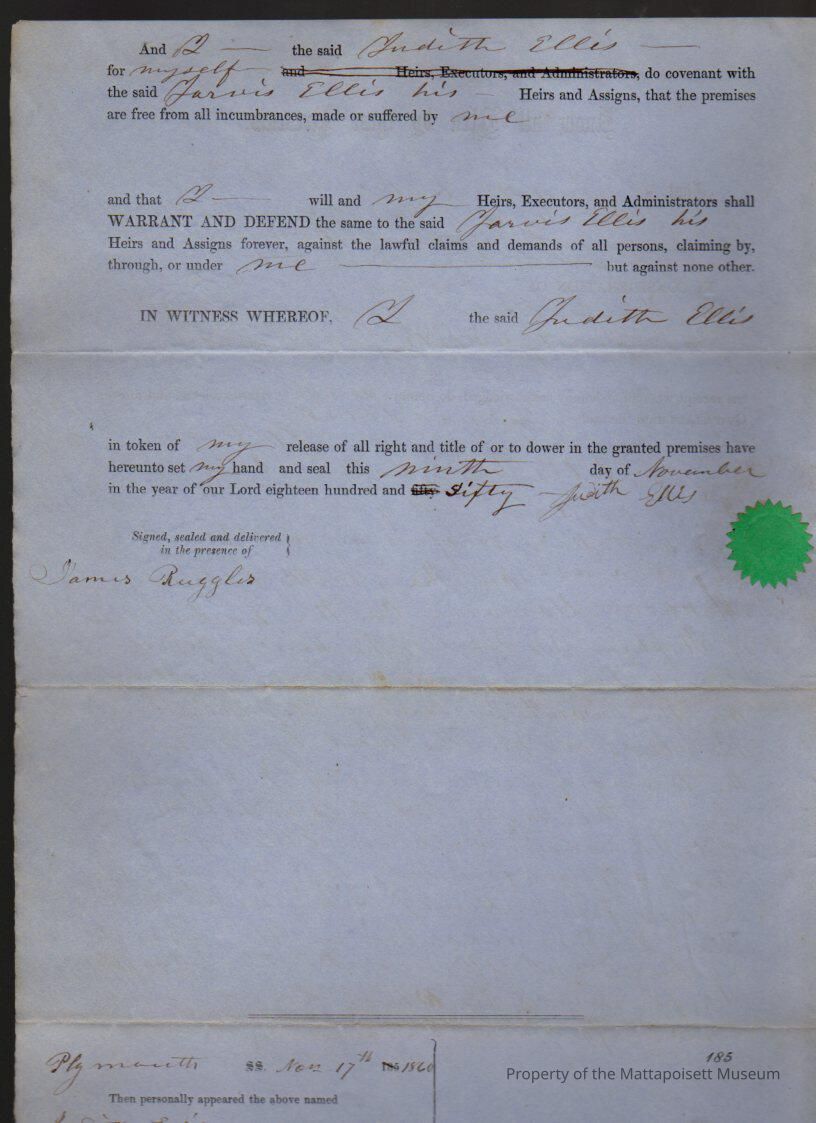 And I the said Judith Ellis
for myself and Heirs, Executors, and Administrators, do covenant with
the said Jarvis Ellis his Heirs and Assigns, that the premises
are free from all incumbrances, made or suffered by me
and that I will and my Heirs, Executors, and Administrators shall
WARRANT AND DEFEND the same to the said Jarvis Ellis his
Heirs and Assigns forever, against the lawful claims and demands of all persons, claiming by,
through, or under me but against none other.
IN WITNESS WHEREOF, I the said Judith Ellis
in token of my release of all right and title of or to dower in the granted premises have
hereunto set my hand and seal this ninth day of November
in the year of our Lord eighteen hundred and fifty sixty Judith Ellis
Signed, sealed and delivered
in the presence of
James Ruggles
Plymouth SS. Nov 17th 185 1860
185
Property of the Mattapoisett Museum
Then personally appeared the above named